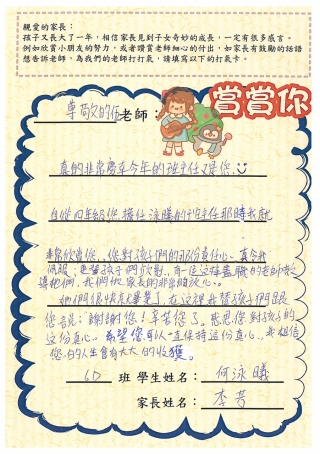 親愛的家長：
孩子又長大了一年，相信家長見到子女奇妙的成長，一定有很多感言。
例如欣賞小朋友的努力，或者讚賞老師細心的付出，如家長有鼓勵的話語
想告訴老師，為我們的老師打打氣，請填寫以下的打氣卡。
賞賞你
尊敬的伍老師：
真的非常慶幸今年的班主任又是您
自從四年級您擔任泳曦的班主任那時我就
非常欣賞您，您對孩子們的那份真任心，真令我
佩服；更替孩子們欣慰，有一這這樣盡職的老師教
導他們，我們做家長的非常的放心。
她們很快就畢業了，在這裡我替孩子們跟
您說：謝謝您！辛苦您了。感恩您對孩子的
這份真心，希望您可以一直保持這份真心，我相信
您的人生會有大大的收獲。
6D 班 學生姓名：何泳曦
家長姓名：李芳